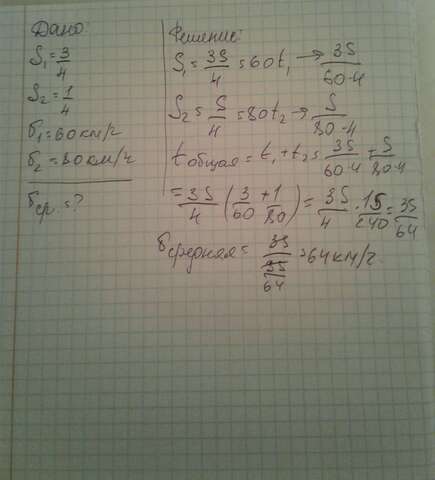 Дано:
S₁ = 3/4
S₂ = 1/4
υ₁ = 60 км/г
υ₂ = 80 км/г
υср. = ?
Решение:
S₁ = 3S/4 = 60t₁ → 3S/60·4
S₂ = S/4 = 80t₂ → S/80·4
t общая = t₁ + t₂ = 3S/60·4 + S/80·4
= 3S/4 (3/60 + 1/80) = 3S/4 · 15/240 = 3S/64
υсредняя = 3S/3S/64 = 64 км/г